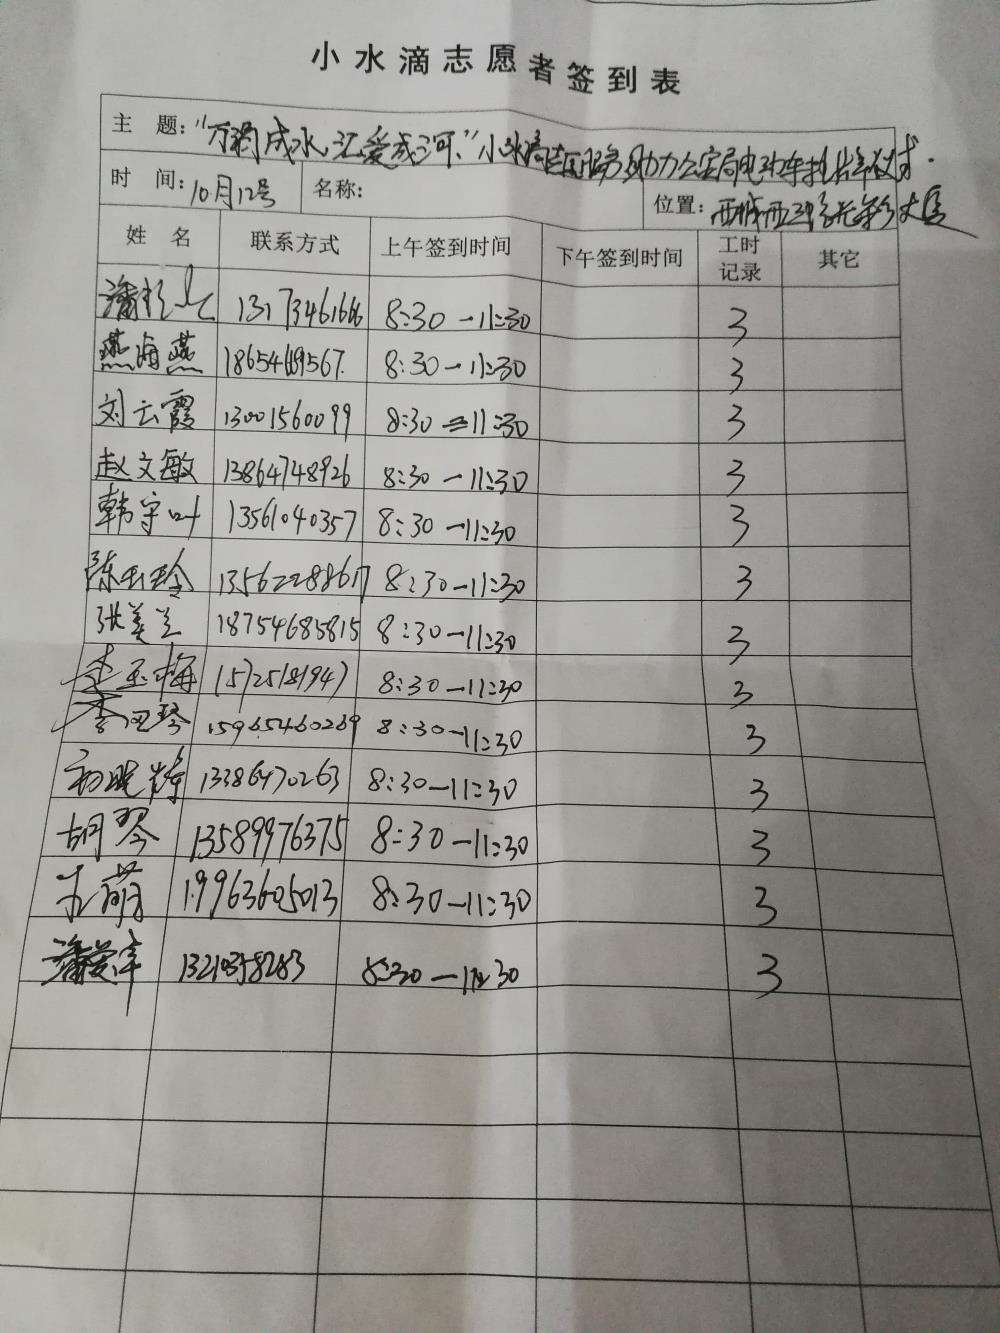 小水滴志愿者签到表
主 题: "万滴成水,汇爱成河"小水滴 服务助力公安局电动车挂牌仪式.
时 间: 10月12号 名称: 位置: 西城西三路 大厦
姓 名 联系方式 上午签到时间 下午签到时间 工时记录 其它
潘 13173461666 8:30-11:30 3
燕海燕 8:30-11:30 3
刘云霞 13001560099 8:30-11:30 3
赵文敏 13864748926 8:30-11:30 3
韩守叶 13561040357 8:30-11:30 3
陈玉玲 13562288617 8:30-11:30 3
张美兰 18754685815 8:30-11:30 3
李玉梅 15725181947 8:30-11:30 3
李 琴 15965460269 8:30-11:30 3
初晓 13386470263 8:30-11:30 3
胡琴 13589976375 8:30-11:30 3
萌 19963605013 8:30-11:30 3
潘 13210358283 8:30-11:30 3